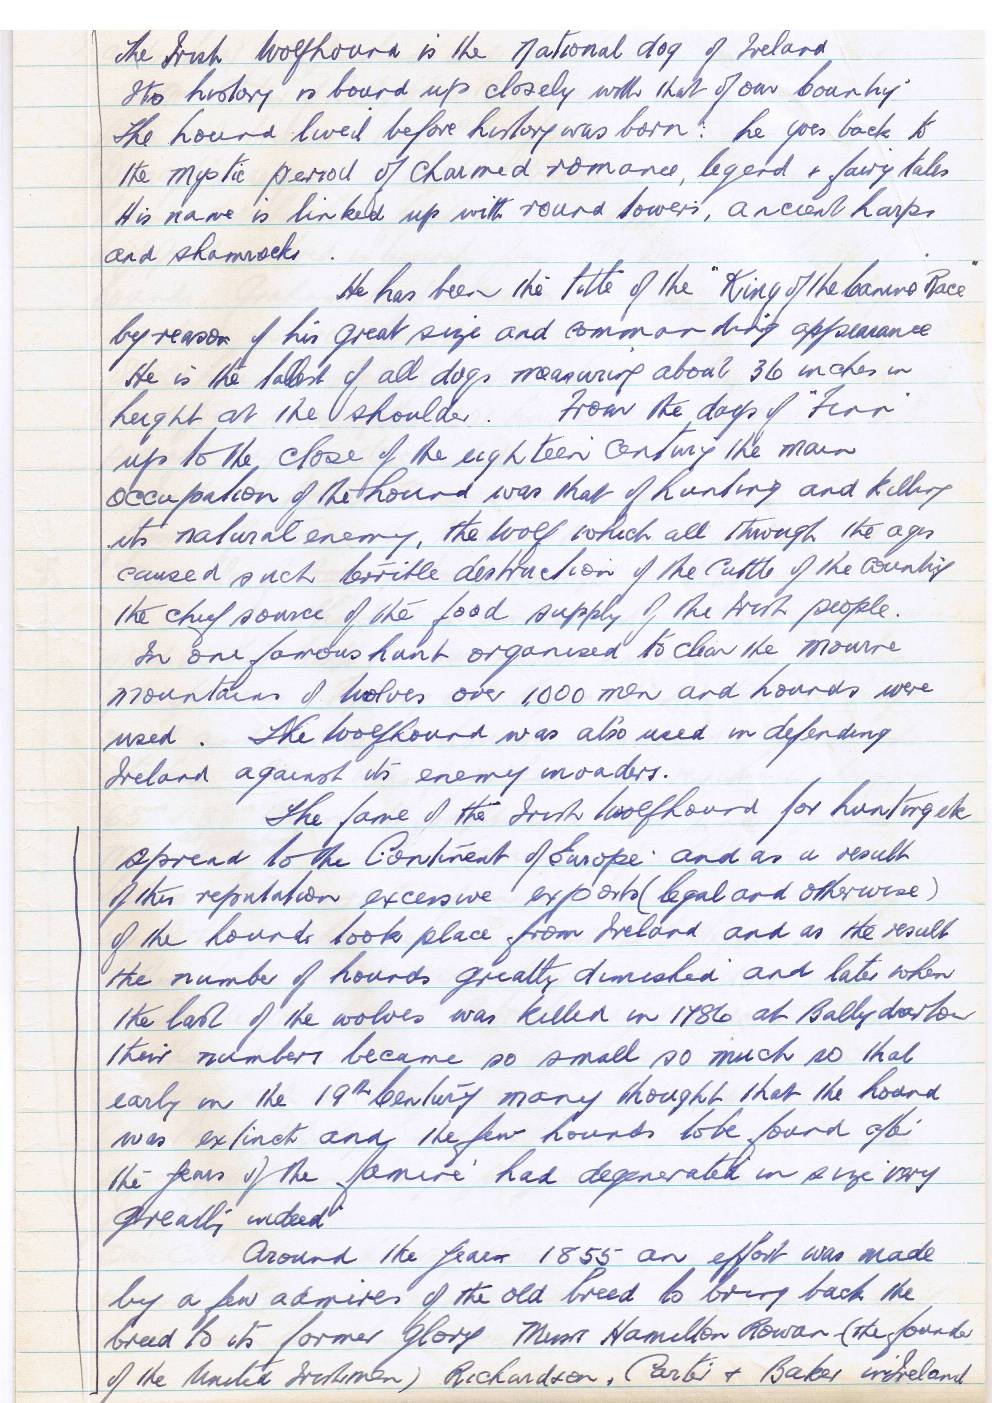 The Irish Wolfhound is the national dog of Ireland
Its history is bound up closely with that of our Country
The hound lived before history was born: he goes back to
the mystic period of charmed romance, legend + fairy tales
His name is linked up with round towers, ancient harps
and shamrocks.
He has been the title of the "King of the Canine Race"
by reason of his great size and commanding appearance
He is the tallest of all dogs measuring about 36 inches in
height at the shoulder. From the days of "Finn"
up to the close of the eighteen Century the main
occupation of the hound was that of hunting and killing
its natural enemy, the Wolf which all through the ages
caused such terrible destruction of the Cattle of the Country
the chief source of the food supply of the Irish people.
In one famous hunt organised to clear the Mourne
Mountains of Wolves over 1,000 men and hounds were
used. The Wolfhound was also used in defending
Ireland against its enemy invaders.
The fame of the "Irish Wolfhound for hunting etc
spread to the Continent of Europe and as a result
of this reputation excessive exports (legal and otherwise)
of the hounds took place from Ireland and as the result
the number of hounds greatly dimished and later when
the last of the wolves was killed in 1786 at Ballydarton
their numbers became so small so much so that
early in the 19th Century many thought that the hound
was extinct and the few hounds to be found after
the years of the famine had degenerated in size very
greatly indeed
Around the year 1855 an effort was made
by a few admires of the old breed to bring back the
breed to its former Glory Hamilton Rowan (the founder
of the United Irishmen) Richardson, Carter + Baker in Ireland